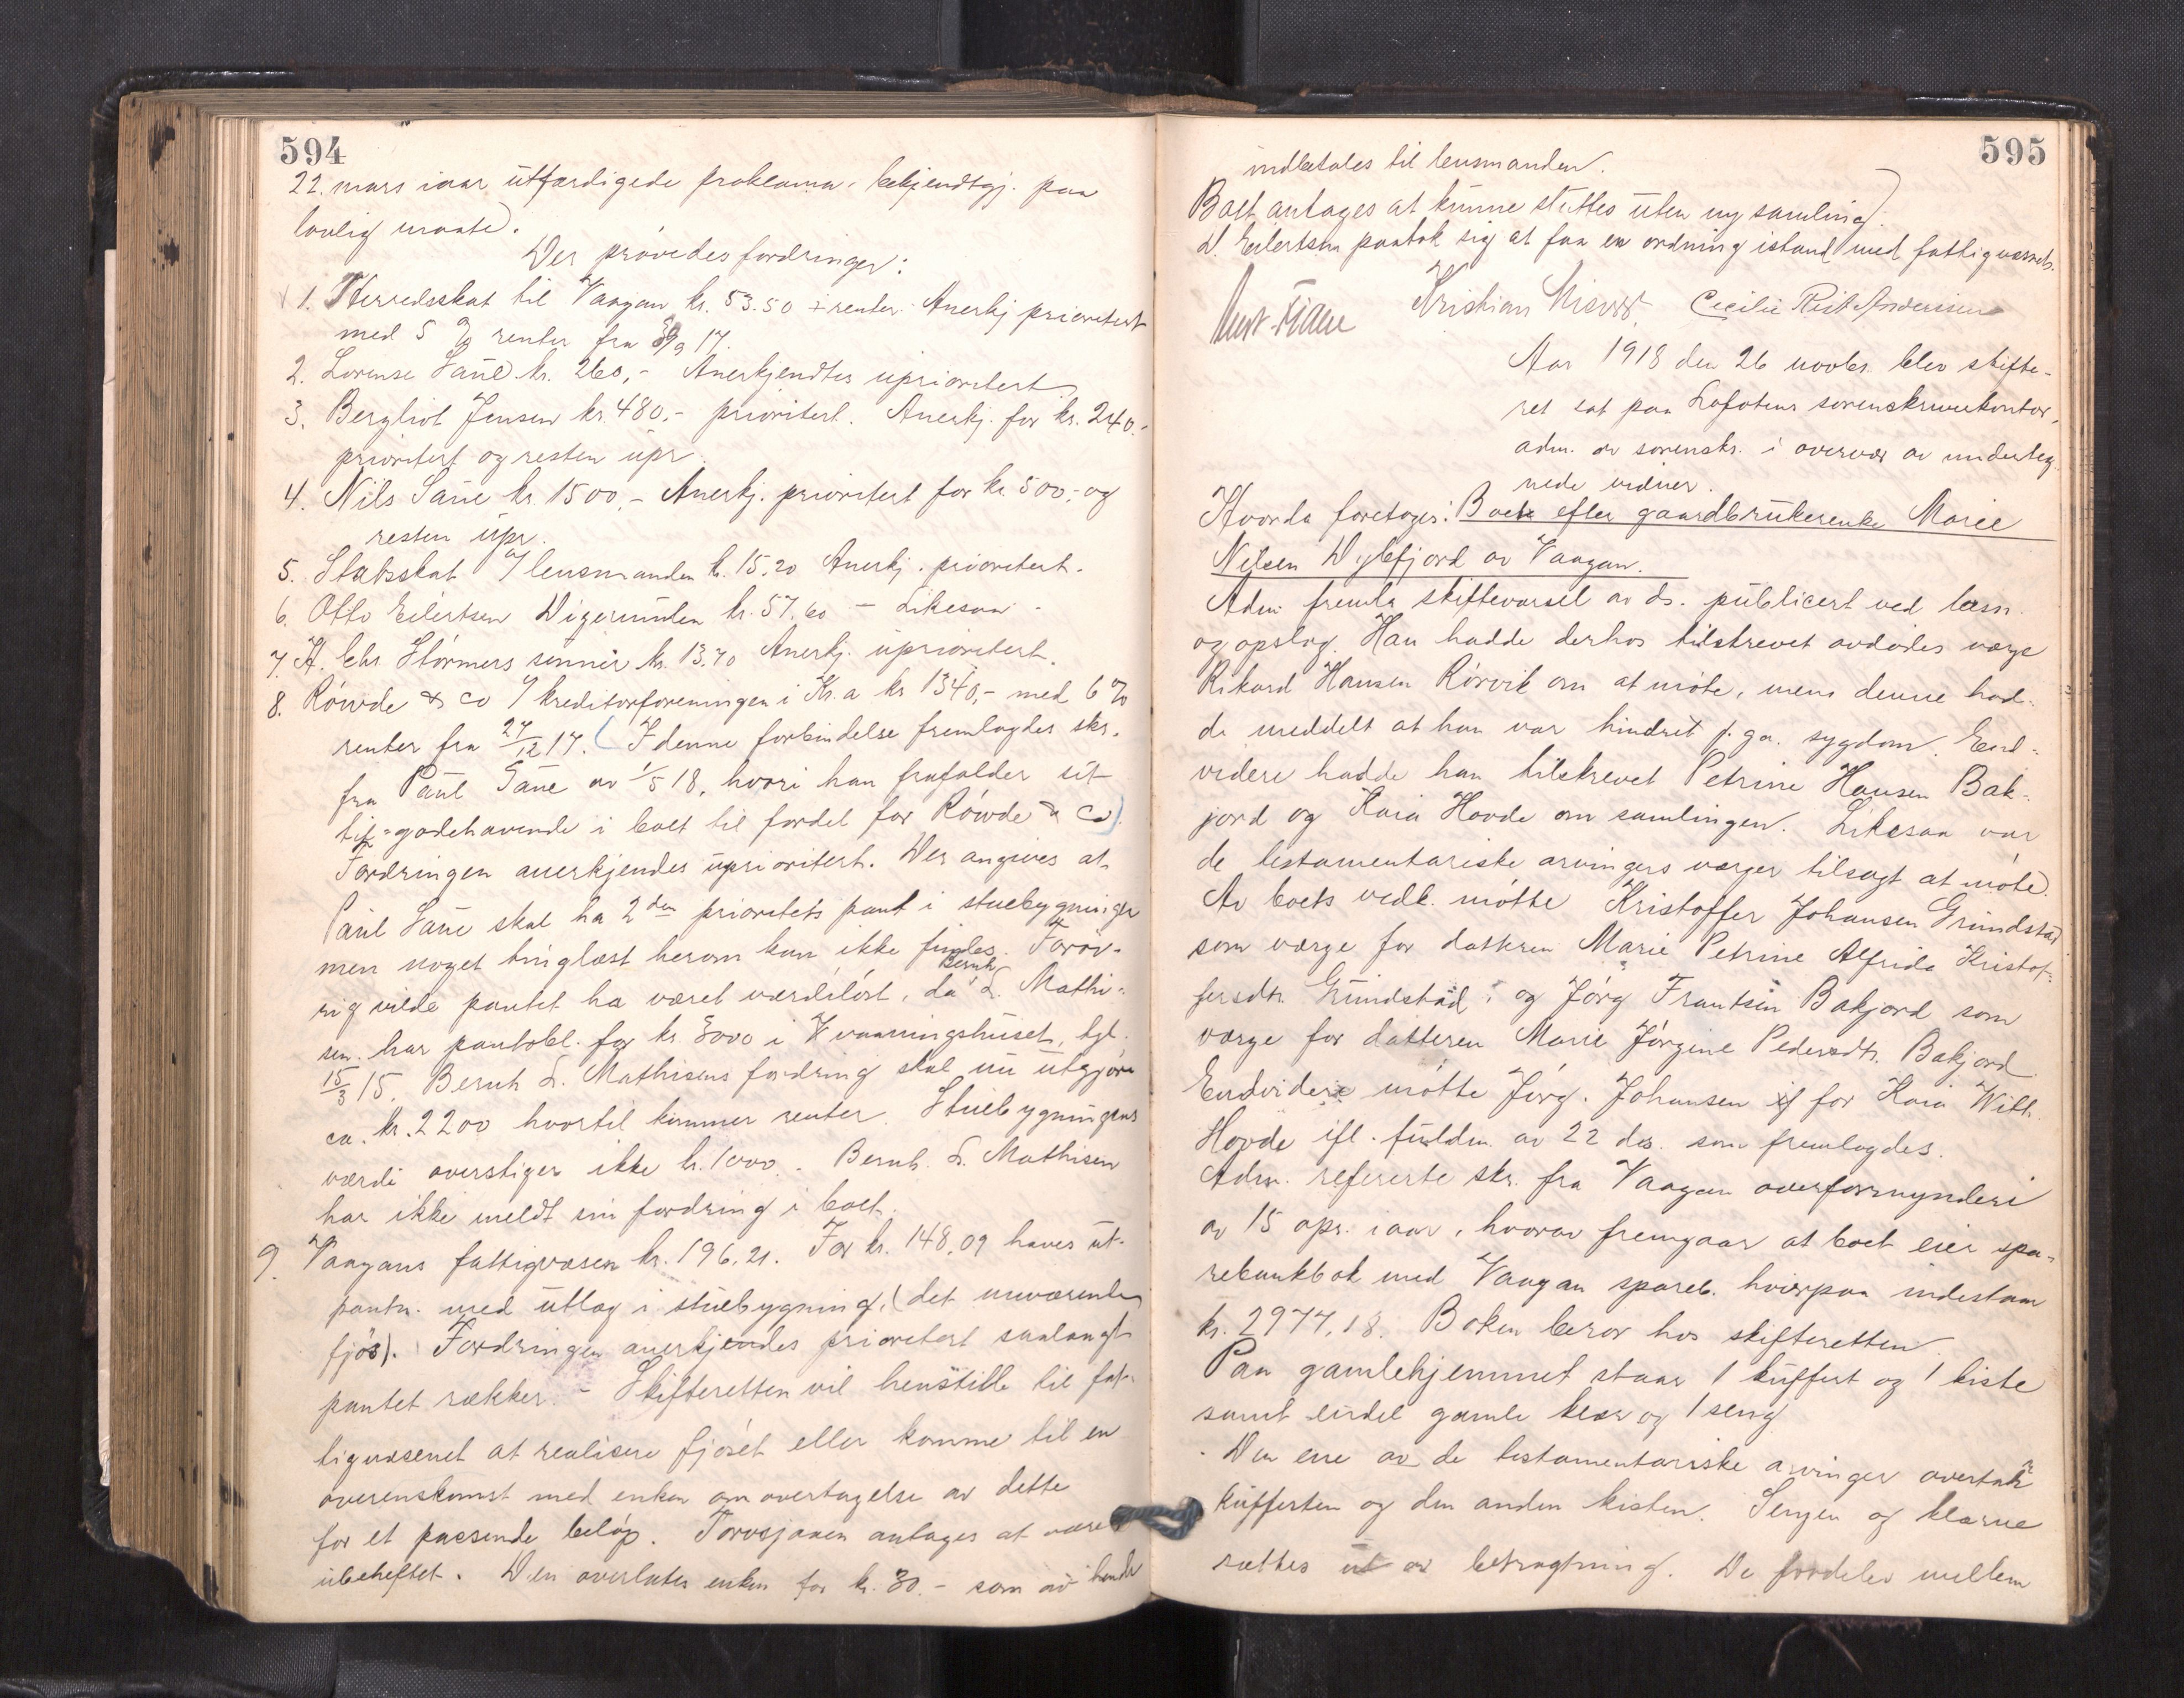 594
22. mars iaar utfærdigede proklama, bekjendtgj. paa
lovlig maate.
Der prøvedes fordringer:
1. Herredsskat til Vaagan kr. 53.50 + renter. Anerkj prioritert
med 5 % renter fra 30/9 17.
2. Lorense Saue kr. 260,- Anerkjendtes uprioritert.
3. Bergliot Jensen kr. 480.- prioritert. Anerkj. for kr. 240.-
prioritert og resten upr.
4. Nils Saue kr. 1500,- Anerkj. prioritert for kr 500,- og
resten upr.
5. Statsskat v/ lensmanden kr. 15.20 Anerkj. prioritert.
6. Otto Eilertsen Digermulen kr. 57.60 - Likesaa -
7. H. Chr. Størmers sønner kr. 13.70 Anerkj. uprioritert.
8. Røwde & Co v/ kreditorforeningen i Kr.a kr 1340,- med 6 %
renter fra 27/12 17. (I denne forbindelse fremlagdes skr.
fra Paul Saue av 1/5 18, hvori han frafalder sit
tilgodehavende i boet til fordel for Røwde & Co).
Fordringen anerkjendes uprioritert. Der angives at
Paul Saue skal ha 2den prioritets pant i stuebygningen
men noget tinglæst herom kan ikke findes. Forøv-
rig vilde pantet ha været værdiløst, da Bernh. L. Mathi-
sen har pantobl. for kr 3000 i Vaaningshuset, tgl.
15/3 15. Bernh L. Mathisens fordring skal nu utgjøre
ca. kr. 2200 hvortil kommer renter. Stuebygningens
værdi overstiger ikke kr. 1000.- Bernh. L. Mathisen
har ikke meldt sin fordring i boet.
9. Vaagans fattigvæsen kr. 196.21. For kr. 148,09 haves ut-
pantn. med utlæg i stuebygning, (det nuværende
fjøs). Fordringen anerkjendes prioritert saalangt
pantet rækker. - Skifteretten vil henstille til fat-
tigvæsenet at realisere fjøset eller komme til en
overenskomst med enken om overtagelse av dette
for et passende beløp. Torvsjaaen antages at være
ubeheftet. Den overlates enken for kr. 30.- som av hende
595
indbetales til lensmanden.
Boet antages at kunne sluttes uten ny samling.
D. Eilertsen paatok sig at faa en ordning istand med fattigvæsenet.
Kristian Cecilie
Aar 1918 den 26 novbr. blev skifte-
ret sat paa Lofotens sorenskriverkontor,
adm. av sorenskr. i overvær av underteg
nede vidner.
Hvorda foretoges: Boet efter gaardbrukerenke Marie
Nilsen Dybfjord av Vaagan.
Adm. fremla skiftevarsel av ds. publicert ved læsn.
og opslag. Han hadde derhos tilskrevet avdødes værge
Rikard Hansen Rørvik om at møte, mens denne had-
de meddelt at han var hindret p. ga. sygdom. End-
videre hadde han tilskrevet Petrine Hansen Bak-
jord og Kaia Hovde om samlingen. Likesaa var
de testamentariske arvingers værger tilsagt at møte.
Av boets vedk. møtte Kristoffer Johansen Grundstad
som værge for datteren Marie Petrine Alfrida Kristof-
fersdtr. Grundstad, og Jørg Frantsen Bakjord som
værge for datteren Marie Jørgine Pedersdtr. Bakjord.
Endvidere møtte Jørg. Johansen for Kaia Wilh.
Hovde ifl. fuldm. av 22 ds. som fremlagdes.
Adm. refererte skr. fra Vaagan overformynderi
av 15 apr. iaar, hvorav fremgaar at boet eier spa-
rebankbok med Vaagan spareb. hvorpaa indestaar
kr. 2977,18. Boken beror hos skifteretten.
Paa gamlehjemmet staar 1 kuffert og 1 kiste
samt endel gamle klær og 1 seng.
- Den ene av de testamentariske arvinger overtar
kufferten og den anden kisten. Sengen og klærne
sættes ut av betragtning. De fordeles mellem